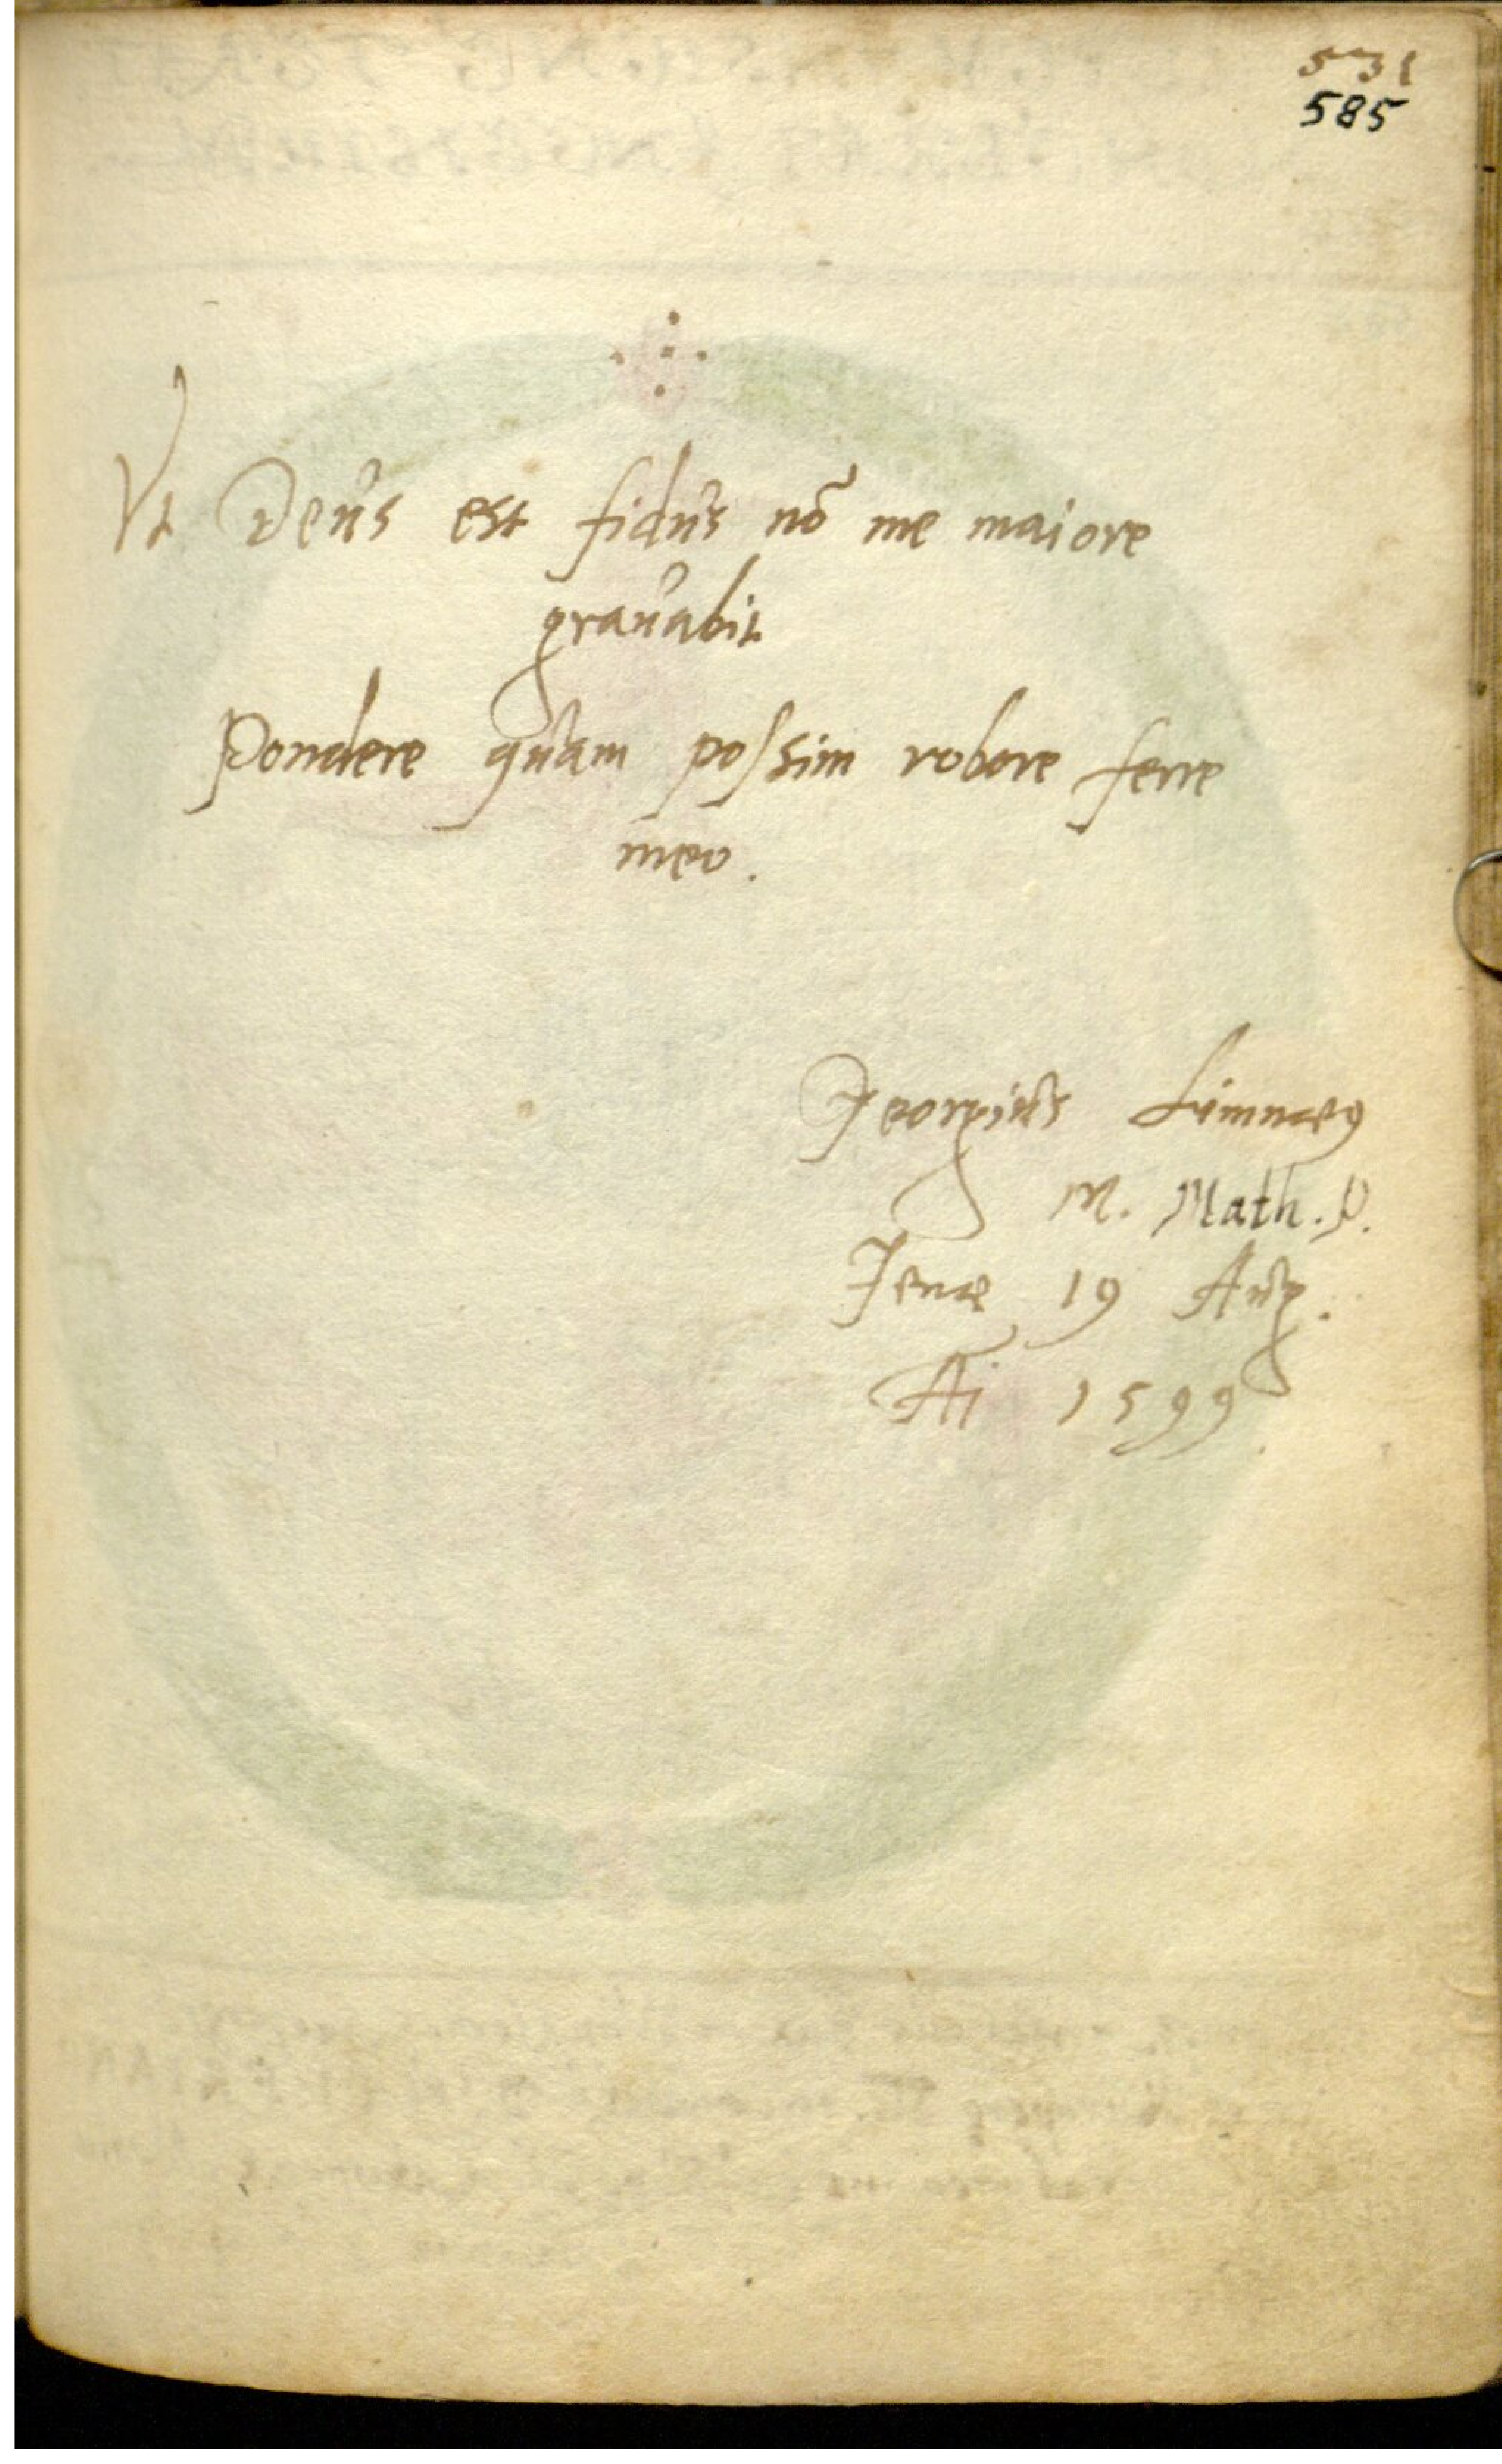 531
585
Vt Deus est fidus nō me maiore
grauabit
Pondere quam poſsim robore ferre
meo.
Georgius Limnaeꝯ
M. Math. P.
Jenae 19 Aug.
Ai 1599